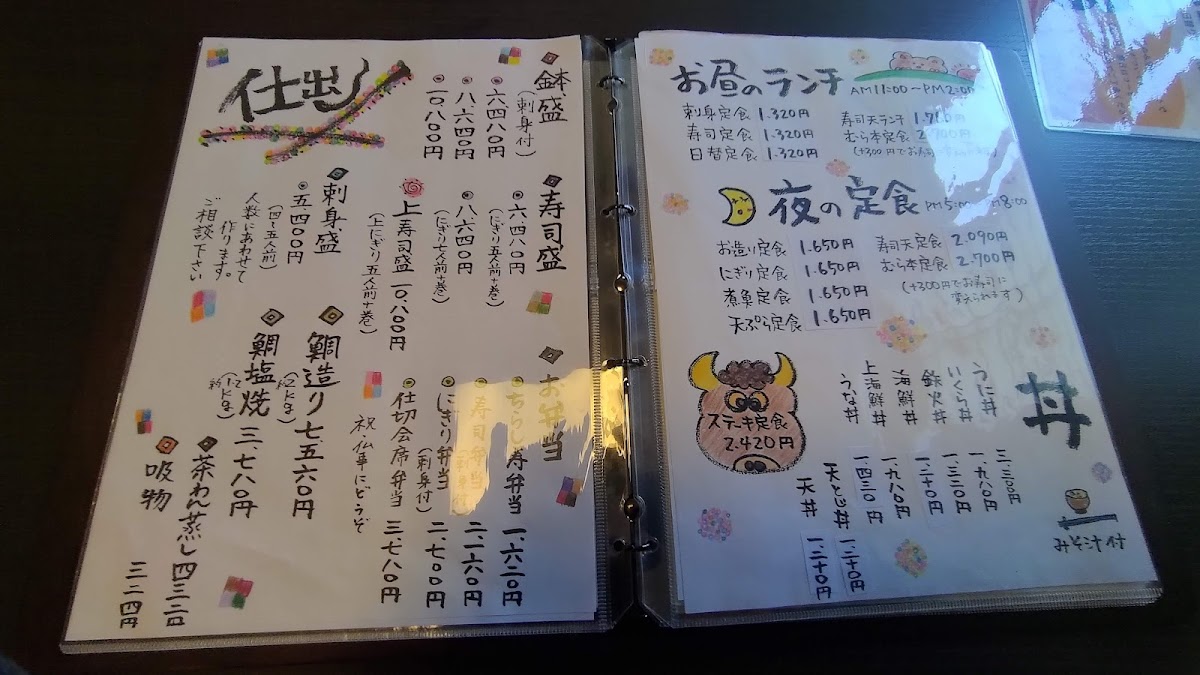 仕出し
鉢盛
(刺身付)
六、四八〇円
八、六四〇円
一〇、八〇〇円
寿司盛
六、四八〇円
(にぎり五人前+巻)
八、六四〇円
(にぎり七人前+巻)
上寿司盛 一〇、八〇〇円
(上にぎり五人前+巻)
刺身盛
五、四〇〇円
(四〜五人前)
人数にあわせて
作ります。
ご相談下さい
お弁当
ちらし寿弁当 一、六二〇円
二、一六〇円
にぎり弁当 二、七〇〇円
(刺身付)
仕切会席弁当 三、七八〇円
祝、仏事にどうぞ
鯛造り 七五六〇円
鯛塩焼 三、七八〇円
茶わん蒸し 四三二円
吸物 三二四円
お昼のランチ
AM11:00〜PM2:00
刺身定食 1.320円
寿司定食 1.320円
日替定食 1.320円
寿司天ランチ
むら本定食 2.700円
夜の定食
お造り定食 1.650円
にぎり定食 1.650円
煮魚定食 1.650円
天ぷら定食 1.650円
寿司天定食 2.090円
むら本定食 2.700円
(+300円でお寿司に
変えられます)
ステーキ定食
2.420円
丼
うに丼 三、三〇〇円
いくら丼 一、九八〇円
鉄火丼
海鮮丼
上海鮮丼 一、九八〇円
うな丼 一、四三〇円
天とじ丼
天丼
みそ汁付